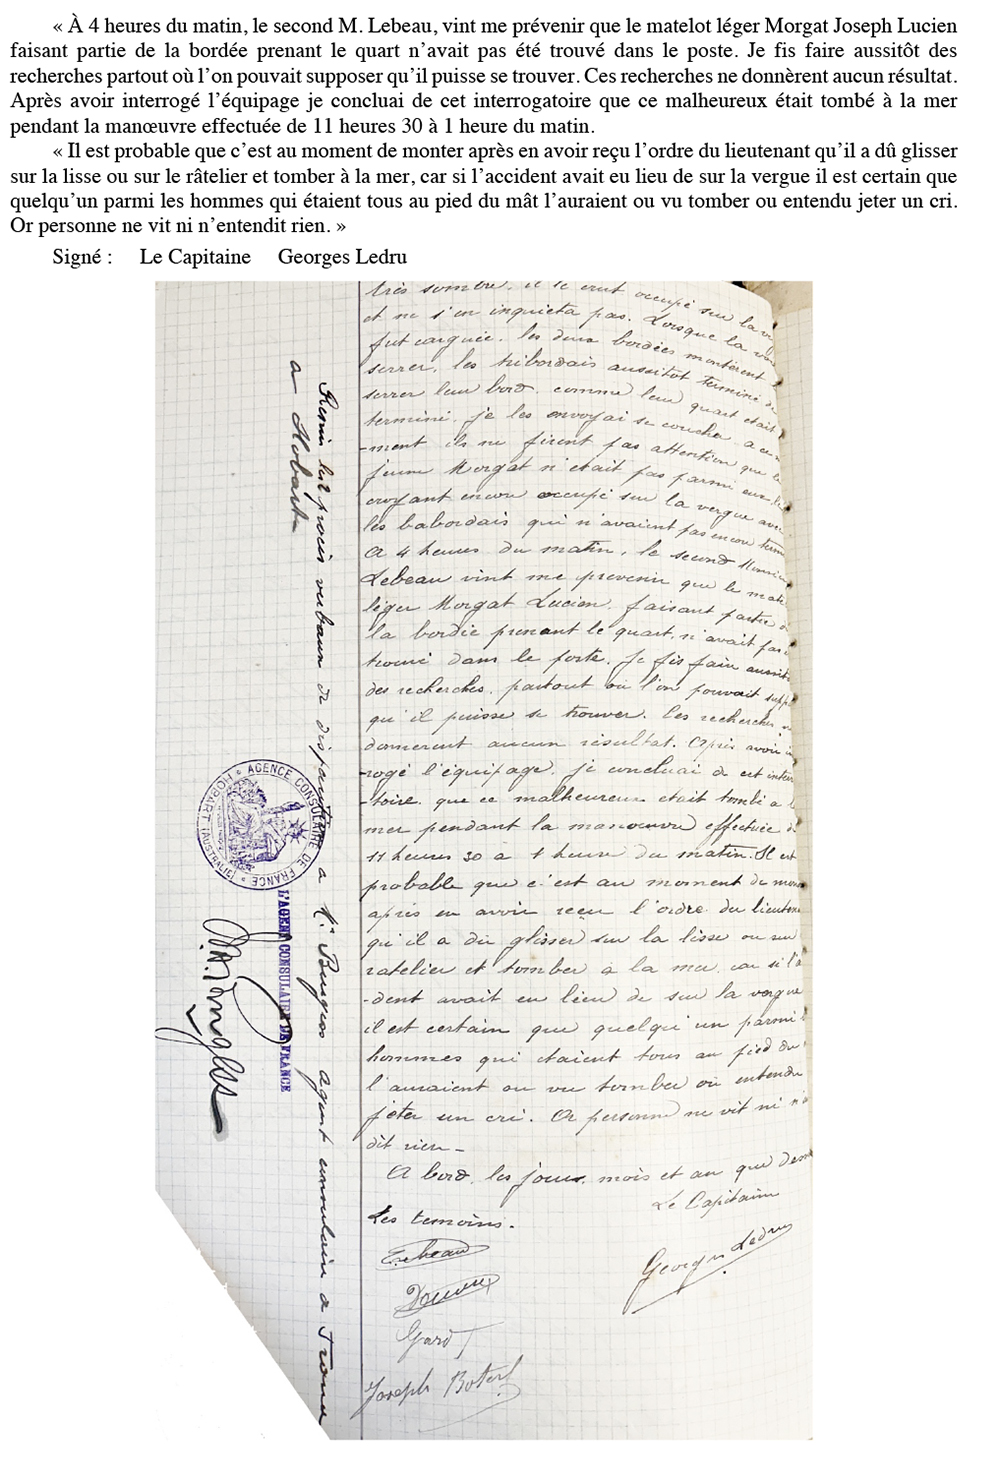 « À 4 heures du matin, le second M. Lebeau, vint me prévenir que le matelot léger Morgat Joseph Lucien
faisant partie de la bordée prenant le quart n’avait pas été trouvé dans le poste. Je fis faire aussitôt des
recherches partout où l’on pouvait supposer qu’il puisse se trouver. Ces recherches ne donnèrent aucun résultat.
Après avoir interrogé l’équipage je concluai de cet interrogatoire que ce malheureux était tombé à la mer
pendant la manœuvre effectuée de 11 heures 30 à 1 heure du matin.
« Il est probable que c’est au moment de monter après en avoir reçu l’ordre du lieutenant qu’il a dû glisser
sur la lisse ou sur le râtelier et tomber à la mer, car si l’accident avait eu lieu de sur la vergue il est certain que
quelqu’un parmi les hommes qui étaient tous au pied du mât l’auraient ou vu tomber ou entendu jeter un cri.
Or personne ne vit ni n’entendit rien. »
Signé : Le Capitaine Georges Ledru
très sombre, il le crut occupé sur la
et ne s'en inquieta pas. Lorsque la
fut carguée, les deux bordées montèrent
serrer, les tribordais aussitot terminé de
serrer leur bord, comme leur quart etait
terminé, je les envoyai se coucher, a ce
-ment ils ne firent pas attention que le
jeune Morgat n'etait pas parmi eux le
croyant encore occupé sur la vergue avec
les babordais qui n'avaient pas encore
A 4 heures du matin, le second
Lebeau vint me prevenir que le
léger Morgat Lucien, faisant partie
la bordée prenant le quart, n'avait pas
trouvé dans le poste. Je fis faire
des recherches, partout où l'on pouvait
qu'il puisse se trouver. Ces recherches
donnerent aucun résultat. Après avoir
-rogé l'équipage, je concluai de cet
-toire, que ce malheureux etait tombé a
mer pendant la manœuvre effectuée
11 heures 30 à 1 heure du matin. Il est
probable que c'est au moment de
après en avoir reçu l'ordre du
qu'il a dû glisser sur la lisse ou sur
ratelier et tomber à la mer, car si
-dent avait eu lieu de sur la vergue
il est certain que quelqu'un parmi
hommes qui etaient tous au pied du
l'auraient ou vu tomber ou entendu
jeter un cri. Or personne ne vit ni
dit rien -
A bord, les jours, mois et an que
Le Capitaine
Les temoins.
Georges Ledru
Lebeau
Gard
Joseph
procès verbaux de disparition a Mr. agent consulaire a
a Hobart
AGENCE CONSULAIRE DE FRANCE
HOBART (AUSTRALIE)
L'AGENT CONSULAIRE DE FRANCE